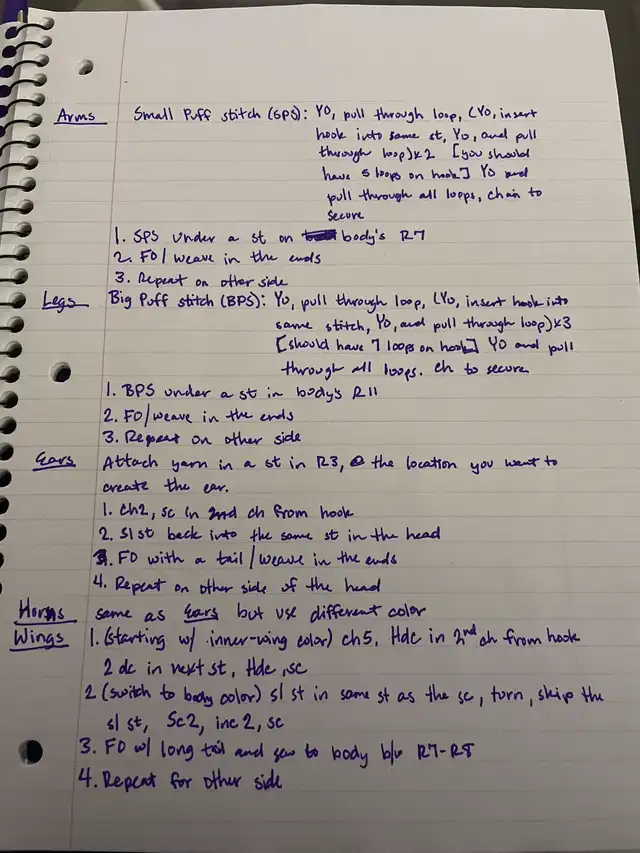 Arms Small Puff stitch (SPS): YO, pull through loop, (YO, insert
hook into same st, YO, and pull
through loop)x2 [you should
have 5 loops on hook] YO and
pull through all loops, chain to
secure
1. SPS under a st on body's R7
2. FO/weave in the ends
3. Repeat on other side
Legs Big Puff stitch (BPS): YO, pull through loop, (YO, insert hook into
same stitch, YO, and pull through loop)x3
[should have 7 loops on hook] YO and pull
through all loops. ch to secure
1. BPS under a st in body's R11
2. FO/weave in the ends
3. Repeat on other side
Ears Attach yarn in a st in R3, @ the location you want to
create the ear.
1. Ch2, sc in 2nd ch from hook
2. Sl st back into the same st in the head
3. FO with a tail/weave in the ends
4. Repeat on other side of the head
Horns same as Ears but use different color
Wings 1. (starting w/ inner-wing color) ch5, Hdc in 2nd ch from hook
2 dc in next st, Hdc, sc
2 (switch to body color) sl st in same st as the sc, turn, skip the
sl st, Sc2, inc2, sc
3. FO w/ long tail and sew to body b/w R7-R8
4. Repeat for other side